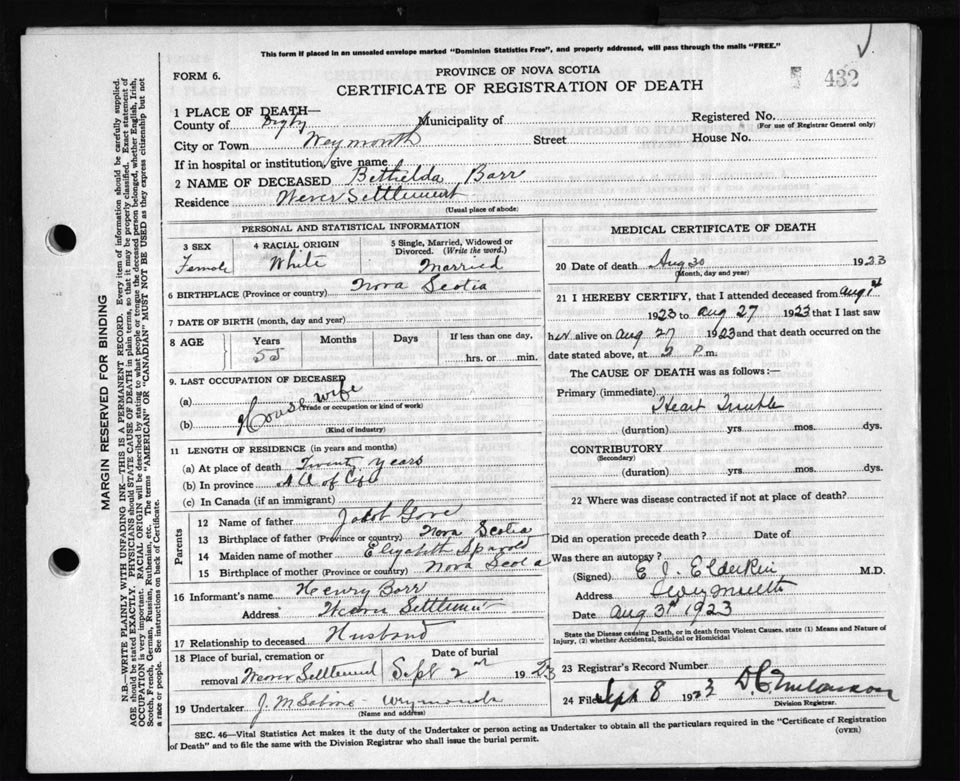 This form if placed in an unsealed envelope marked "Dominion Statistics Free", and properly addressed, will pass through the mails "FREE."
FORM 6.
PROVINCE OF NOVA SCOTIA
CERTIFICATE OF REGISTRATION OF DEATH
432
1 PLACE OF DEATH—
County of Digby Municipality of
Registered No.
(For use of Registrar General only)
City or Town Weymouth Street House No.
If in hospital or institution, give name
2 NAME OF DECEASED Bethelda Barr
Residence Wever Settlement
(Usual place of abode)
PERSONAL AND STATISTICAL INFORMATION
3 SEX Female
4 RACIAL ORIGIN White
5 Single, Married, Widowed or Divorced. (Write the word.) Married
6 BIRTHPLACE (Province or country) Nova Scotia
7 DATE OF BIRTH (month, day and year)
8 AGE Years Months Days If less than one day,
55 hrs. or min.
9. LAST OCCUPATION OF DECEASED
(a) House wife
(Trade or occupation or kind of work)
(b)
(Kind of industry)
11 LENGTH OF RESIDENCE (in years and months)
(a) At place of death Twenty years
(b) In province All of life
(c) In Canada (if an immigrant)
Parents
12 Name of father Jacob Gove
13 Birthplace of father (Province or country) Nova Scotia
14 Maiden name of mother Elizabeth
15 Birthplace of mother (Province or country) Nova Scotia
16 Informant's name Henry Barr
Address Wever Settlement
17 Relationship to deceased Husband
18 Place of burial, cremation or removal Weaver Settlement
Date of burial Sept 2nd 1923
19 Undertaker J. M Sabine Weymouth
(Name and address)
MEDICAL CERTIFICATE OF DEATH
20 Date of death Aug 30 1923
(Month, day and year)
21 I HEREBY CERTIFY, that I attended deceased from Aug 1st
1923 to Aug 27 1923 that I last saw
her alive on Aug 27 1923 and that death occurred on the
date stated above, at P.m.
The CAUSE OF DEATH was as follows:—
Primary (immediate)
Heart Trouble
(duration) yrs mos. dys.
CONTRIBUTORY
(Secondary)
(duration) yrs mos. dys.
22 Where was disease contracted if not at place of death?
Did an operation precede death? Date of
Was there an autopsy?
(Signed) E J. Elderkin M.D.
Address Weymouth
Date Aug 31 1923
State the Disease causing Death, or in death from Violent Causes, state (1) Means and Nature of
Injury, (2) whether Accidental, Suicidal or Homicidal
23 Registrar's Record Number
24 Filed Sept 8 1923
Division Registrar.
SEC. 46—Vital Statistics Act makes it the duty of the Undertaker or person acting as Undertaker to obtain all the particulars required in the "Certificate of Registration
of Death" and to file the same with the Division Registrar who shall issue the burial permit.
(OVER)
MARGIN RESERVED FOR BINDING
N.B.—WRITE PLAINLY WITH UNFADING INK—THIS IS A PERMANENT RECORD. Every item of information should be carefully supplied.
AGE should be stated EXACTLY. PHYSICIANS should STATE CAUSE OF DEATH in plain terms, so that it may be properly classified. Exact statement of
OCCUPATION is very important. RACIAL ORIGIN will be described by stating to what people or tongue the deceased person belonged, whether English, Irish,
Scotch, French, German, Russian, Ruthenian, etc. The terms "AMERICAN" OR "CANADIAN" MUST NOT BE USED as they express citizenship but not
a race or people. See instructions on back of Certificate.